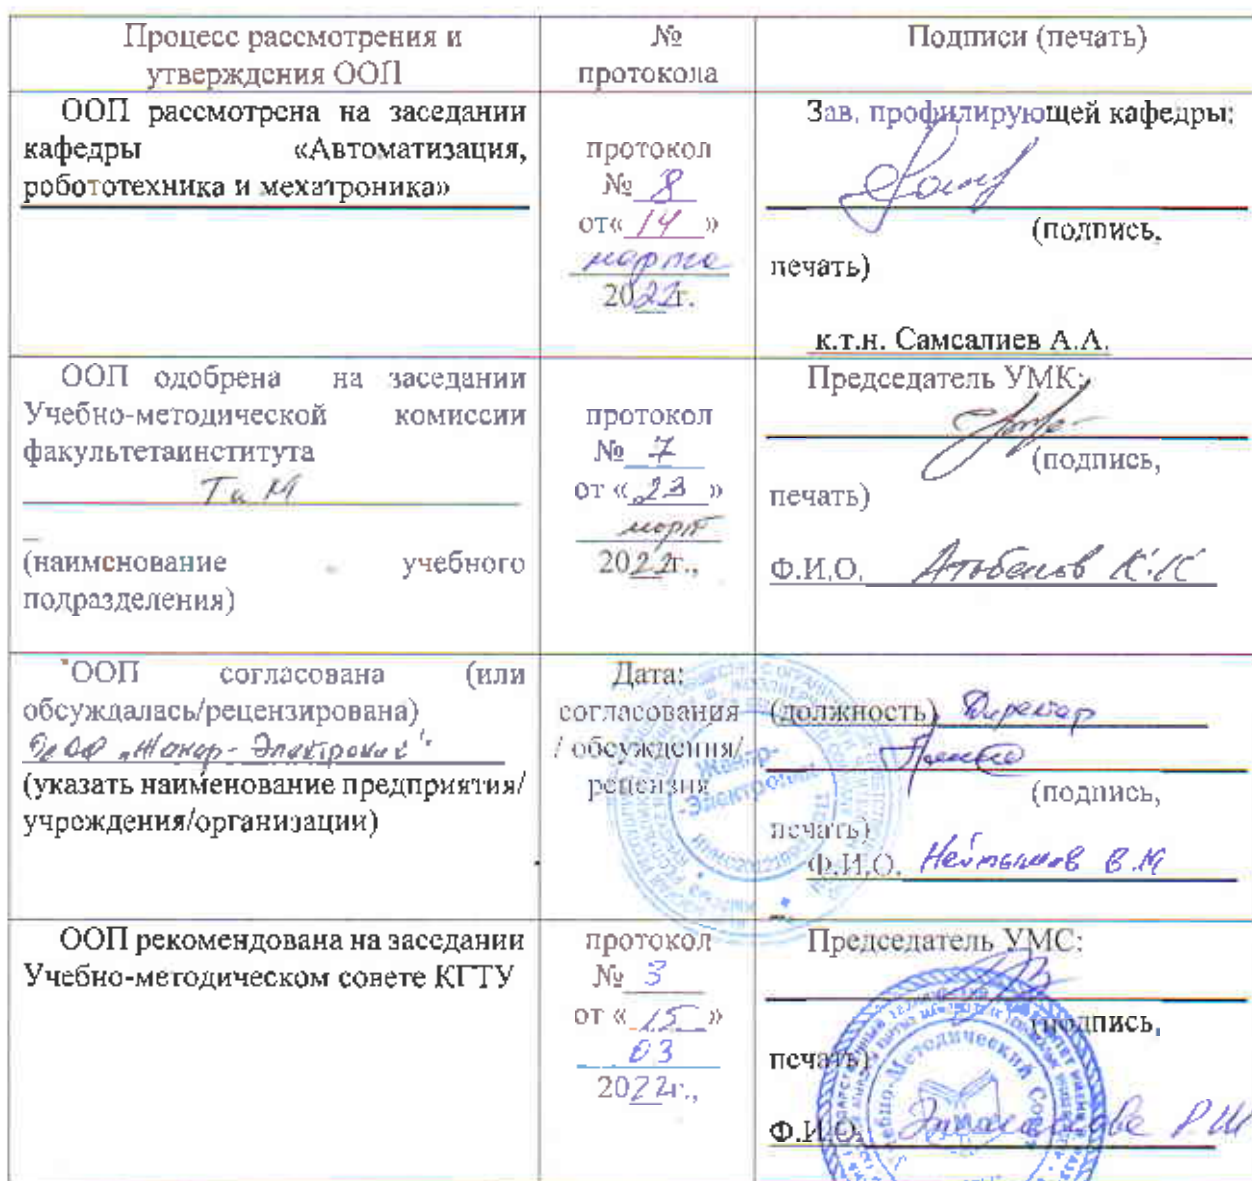 Процесс рассмотрения и
утверждения ООП
№
протокола
Подписи (печать)
ООП рассмотрена на заседании
кафедры «Автоматизация,
робототехника и мехатроника»
протокол
№ 8
от« 14 »
марта
2022г.
Зав. профилирующей кафедры:
(подпись,
печать)
к.т.н. Самсалиев А.А.
ООП одобрена на заседании
Учебно-методической комиссии
факультетаинститута
ТиМ
(наименование учебного
подразделения)
протокол
№ 7
от « 23 »
март
2022г.,
Председатель УМК:
(подпись,
печать)
Ф.И.О. К.К
ООП согласована (или
обсуждалась/рецензирована)
ОсОО „Жанар-Электроникс"
(указать наименование предприятия/
учреждения/организации)
Дата:
согласования
/ обсуждения/
рецензия
Жанар-
Электроникс
(должность) Директор
(подпись,
печать)
Ф.И.О. В.М
ООП рекомендована на заседании
Учебно-методическом совете КГТУ
протокол
№ 3
от « 15 »
03
2022г.,
Председатель УМС:
(подпись,
печать)
Учебно-Методический Совет
Ф.И.О. Р.Ш